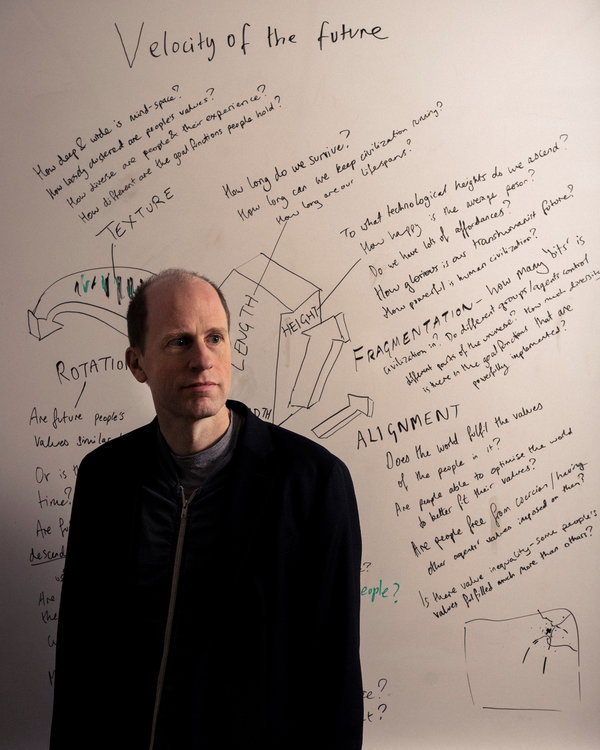 Velocity of the future
How deep & wide is mind-space?
How loosely clustered are people's values?
How diverse are people & their experience?
How different are the goal functions people hold?
TEXTURE
How long do we survive?
How long can we keep civilization running?
How long are our lifespans?
To what technological heights do we ascend?
How happy is the average person?
Do we have lots of affordances?
How glorious is our transhumanist future?
How powerful is human civilization?
LENGTH
HEIGHT
FRAGMENTATION - how many 'bits' is
civilization in? Do different groups/agents control
different parts of the universe? How much diversity
is there in the goal functions that are
powerfully implemented?
ROTATION
Are future people's
values similar
Or is th
time?
Are fu
descend
Are
the
ALIGNMENT
Does the world fulfil the values
of the people in it?
Are people able to optimise the world
to better fit their values?
Are people free from coercion/having
other agents' values imposed on them?
Is there value inequality - some people's
values fulfilled much more than others?
eople?